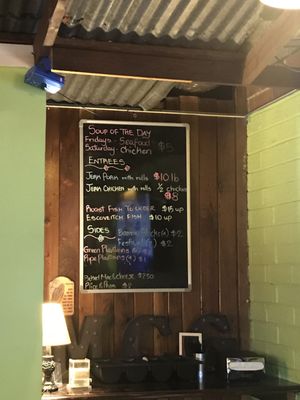 SOUP OF THE DAY
Fridays - Seafood
Saturday - Chicken $5
ENTREES
JERK PORK with rolls $10 lb
JERK CHICKEN with rolls 1/2 chicken
$8
ROAST FISH TO ORDER $15 up
ESCOVEITCH FISH $10 up
SIDES
(4) $2
$2
Green Plantains
Ripe Plantains (4) $1
Baked Mac & Cheese $2.50